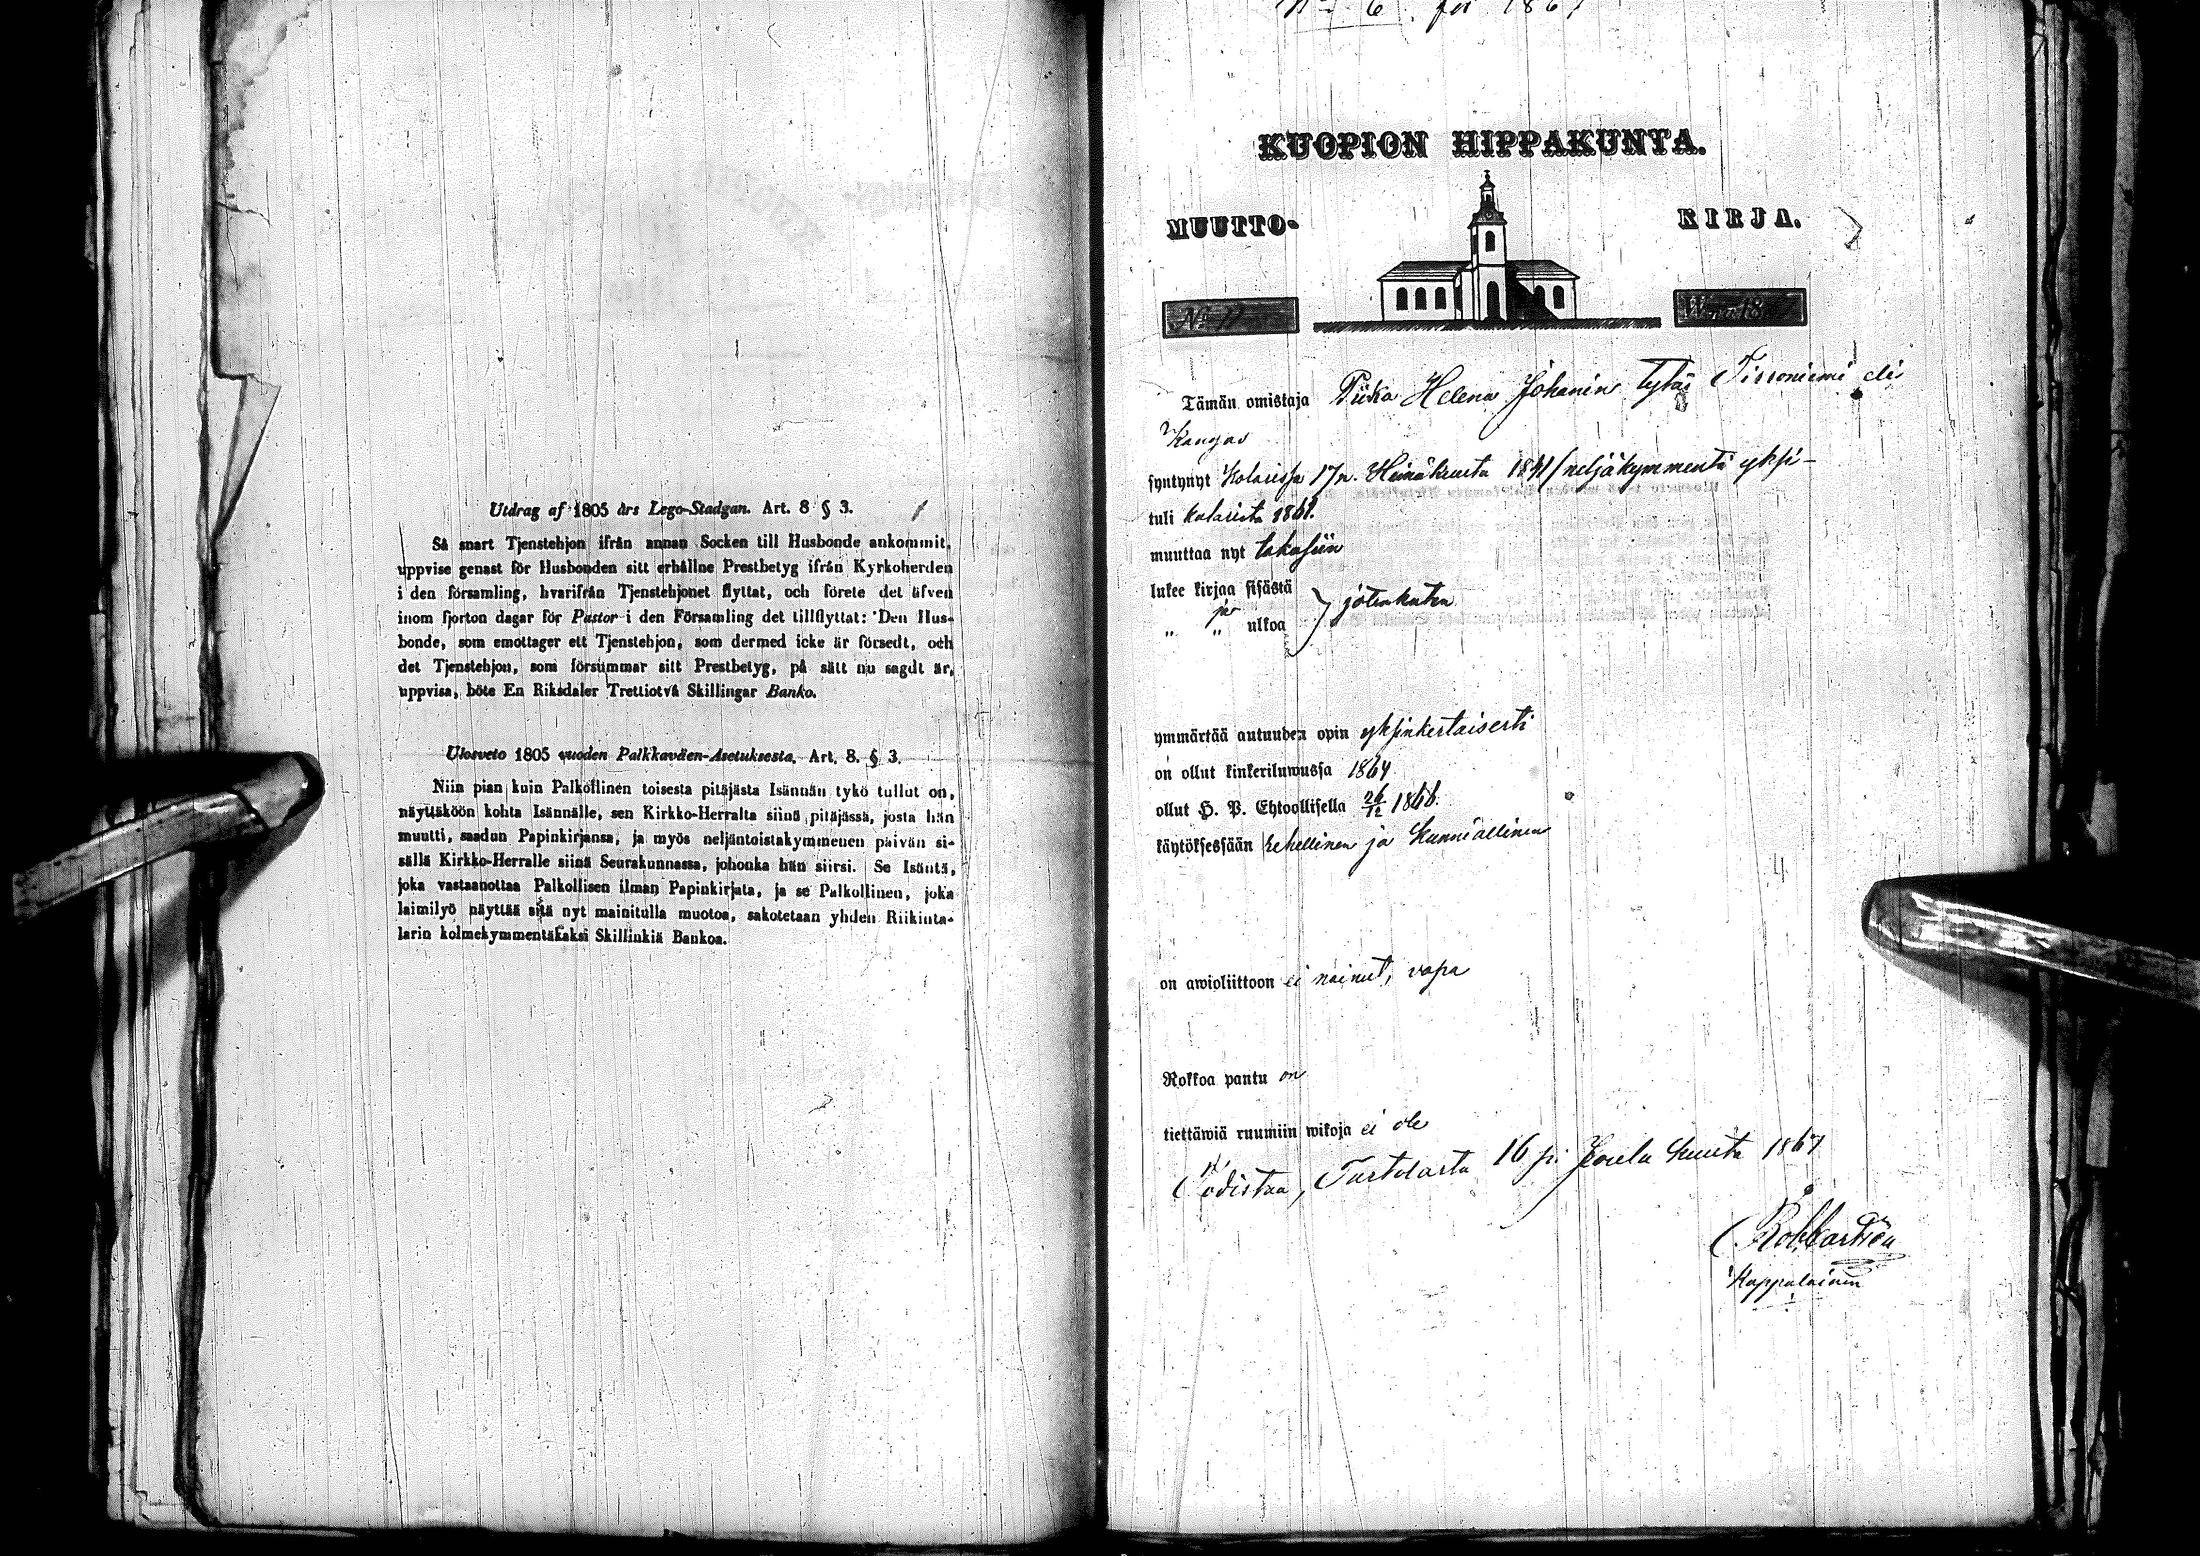 Utdrag af 1805 års Lego-Stadgan. Art. 8 § 3.
Så snart Tjenstehjon ifrån annan Socken till Husbonde ankommit,
uppvise genast för Husbonden sitt erhållne Prestbetyg ifrån Kyrkoherden
i den församling, hvarifrån Tjenstehjonet flyttat, och förete det äfven
inom fjorton dagar för Pastor i den Församling det tillflyttat: Den Hus-
bonde, som emottager ett Tjenstehjon, som dermed icke är försedt, och
det Tjenstehjon, som försummar sitt Prestbetyg, på sätt nu sagdt är,
uppvisa, böte En Riksdaler Trettiotvå Skillingar Banko.
Ulosveto 1805 vuoden Palkkaväen-Asetuksesta. Art. 8. § 3.
Niin pian kuin Palkollinen toisesta pitäjästä Isännän tykö tullut on,
näyttäköön kohta Isännälle, sen Kirkko-Herralta siinä pitäjässä, josta hän
muutti, saadun Papinkirjansa, ja myös neljäntoistakymmenen päivän si-
sällä Kirkko-Herralle siinä Seurakunnassa, johonka hän siirsi. Se Isäntä,
joka vastaanottaa Palkollisen ilman Papinkirjata, ja se Palkollinen, joka
laimilyö näyttää sitä nyt mainitulla muotoa, sakotetaan yhden Riikinta-
larin kolmekymmentäkaksi Skillinkiä Bankoa.
6 för 1867
KUOPION HIPPAKUNTA.
MUUTTO- KIRJA.
No 11
W. 18
Tämän omistaja Piika Helena Johanin tytär Tissoniemi eli
Kangas
syntynyt Kolarissa 17 p. Heinäkuuta 1841 (neljäkymmentä yksi-
tuli Kolarista 1861.
muuttaa nyt takasiin
lukee kirjaa sisästä
ja } jotenkuten
„ „ ulkoa
ymmärtää autuuden opin yksinkertaisesti
on ollut kinkeriluwussa 1864
ollut H. P. Ehtoollisella 26/12 1866.
käytöksessään rehellinen ja kunniallinen
on awioliittoon ei nainut, vapa
Rokkoa pantu on
tiettäwiä ruumiin wikoja ei ole
Todistaa, Turtolasta 16 p: Joulu kuuta 1867
Kappalainen